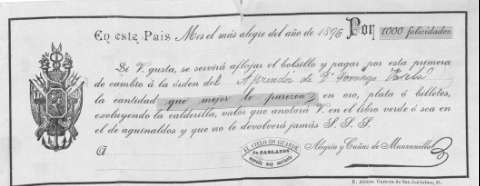 En este País Mes el más alegre del año de 1896 Por 1000 felicidades
Si V. gusta, se servirá aflojar el bolsillo y pagar por esta primera
de cambio á la órden del Aguador D. Domingo
la cantidad que mejor le parezca en oro, plata ó billetes,
excluyendo la calderilla, valor que anotará V. en el libro verde ó sea en
el de aguinaldos y que no le devolverá jamás S. S. S.
Alegría y Cañas de Manzanilla
Á